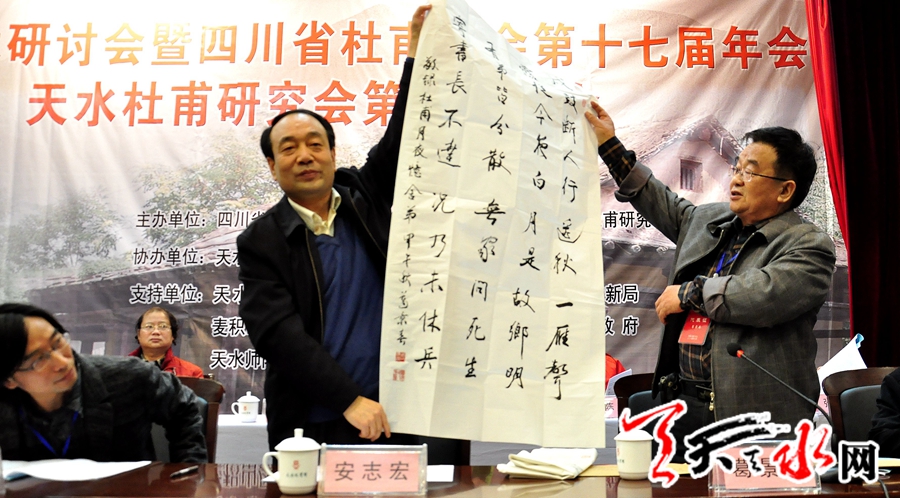 研讨会暨四川省杜甫 会第十七届年会
天水杜甫研究会第
主办单位：四川省 甫研究
协办单位：天水
支持单位：天水 新局
麦积 政府
天水师
鼓断人行邊秋一雁聲
從今夜白月是故鄉明
有弟皆分散無家問死生
寄書長不達況乃未休兵
敬録杜甫月夜憶舍弟 甲午秋葛景春
安志宏
葛景
天天水网